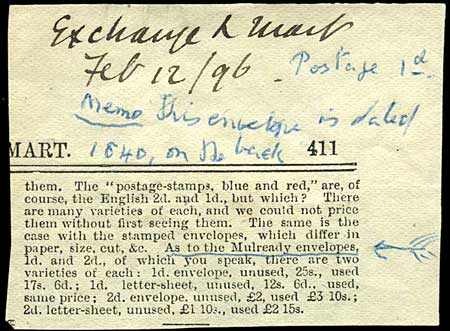 Exchange & Mart
Feb 12/96. Postage 1d
Memo this envelope is dated
1840, on the back
MART. 411
them. The "postage-stamps, blue and red," are, of
course, the English 2d. and 1d., but which? There
are many varieties of each, and we could not price
them without first seeing them. The same is the
case with the stamped envelopes, which differ in
paper, size, cut, &c. As to the Mulready envelopes,
1d. and 2d., of which you speak, there are two
varieties of each: 1d. envelope, unused, 25s., used
17s. 6d.; 1d. letter-sheet, unused, 12s. 6d., used,
same price; 2d. envelope, unused, £2, used £3 10s.;
2d. letter-sheet, unused, £1 10s., used £2 15s.